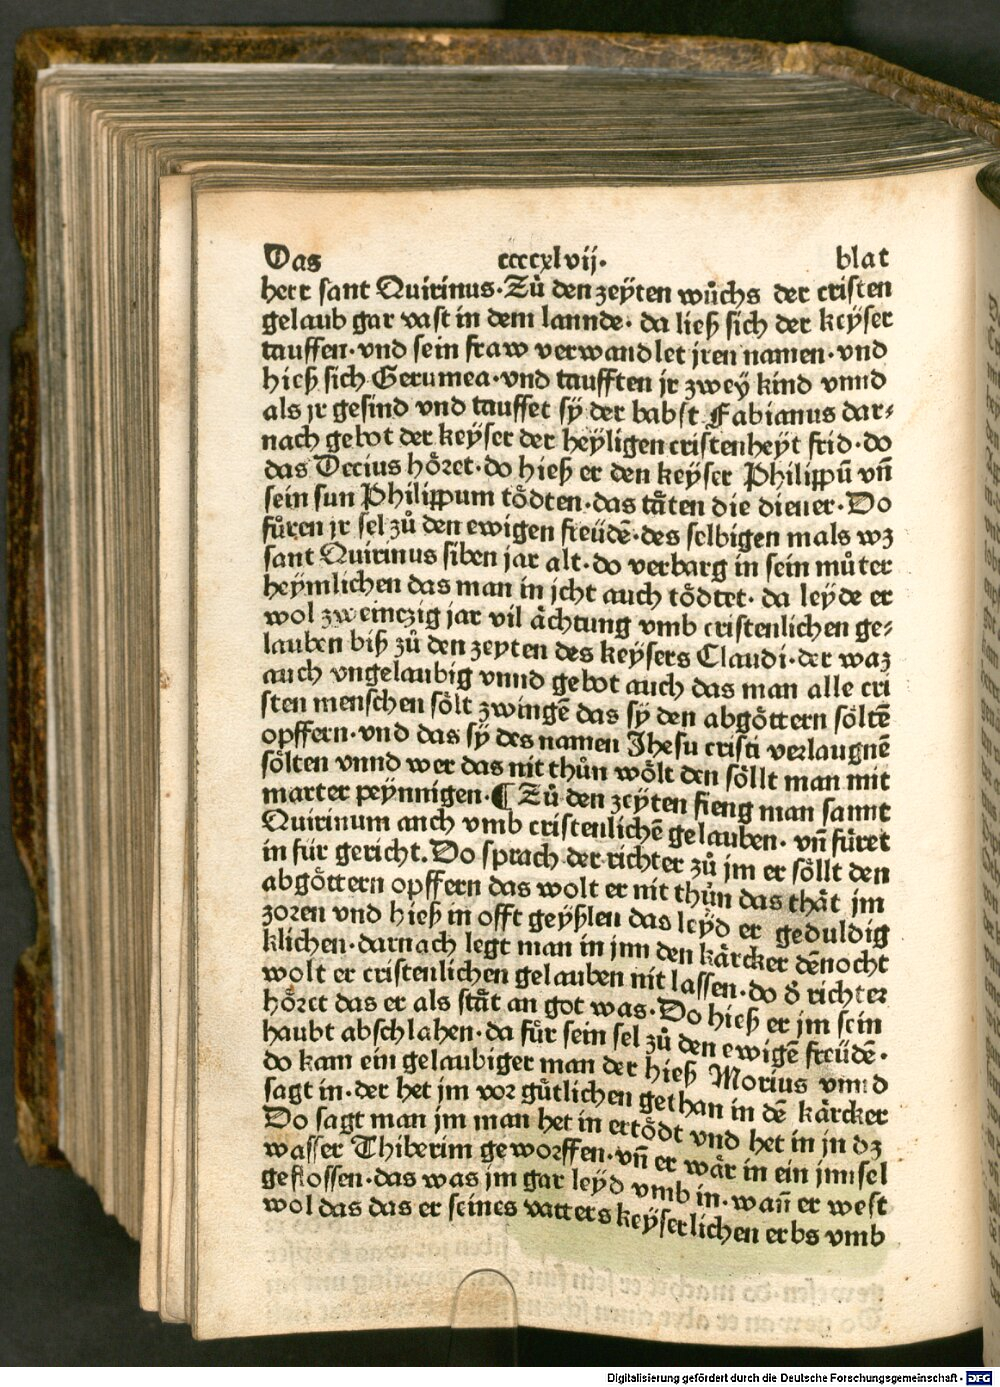 Das ccccxlvij. blat
herr sant Quirinus. Zů den zeÿten wůchs der cristen
gelaub gar vast in dem lannde. da ließ sich der keÿser
tauffen. vnd sein fraw verwandlet jren namen. vnd
hieß sich Gerumea. vnd taufften jr zweÿ kind vnnd
als jr gesind vnd tauffet sÿ der babst Fabianus dar⸗
nach gebot der keÿser der heÿligen cristenheÿt frid. do
das Decius hőret. do hieß er den keÿser Philippū vñ
sein sun Philippum tődten. das tåten die diener. Do
fůren jr sel zů den ewigen freüdē. des selbigen mals wz
sant Quirinus siben jar alt. do verbarg in sein můter
heÿmlichen das man in jcht auch tődtet. da leÿde er
wol zweinczig jar vil ächtung vmb cristenlichen ge⸗
lauben biß zů den zeyten des keÿsers Claudi. der waz
auch vngelaubig vnnd gebot auch das man alle cri
sten menschen sőlt zwingē das sÿ den abgőttern sőltē
opffern. vnd das sÿ des namen Jhesu cristi verlaugnē
sőlten vnnd wer das nit thůn wőlt den sőllt man mit
marter peÿnnigen. ¶ Zů den zeÿten fieng man sannt
Quirinum auch vmb cristenlichē gelauben. vñ fůret
in für gericht. Do sprach der richter zů jm er sőllt den
abgőttern opffern das wolt er nit thůn das thåt jm
zoren vnd hieß in offt geÿßlen das leÿd er geduldig
klichen. darnach legt man in jnn den kårcker dēnocht
wolt er cristenlichen gelauben nit lassen. do d̕ richter
hőret das er als ståt an got was. Do hieß er jm sein
haubt abschlahen. da fůr sein sel zů den ewigē freüdē.
do kam ein gelaubiger man der hieß Morius vnnd
sagt in. der het jm vor gůtlichen gethan in dē kårcker
Do sagt man jm man het in ertődt vnd het in jn dz
wasser Thiberim geworffen. vñ er wår in ein jnnsel
geflossen. das was jm gar leÿd vmb in. wañ er west
wol das das er seines vatters keÿserlichen erbs vmb
Digitalisierung gefördert durch die Deutsche Forschungsgemeinschaft - DFG